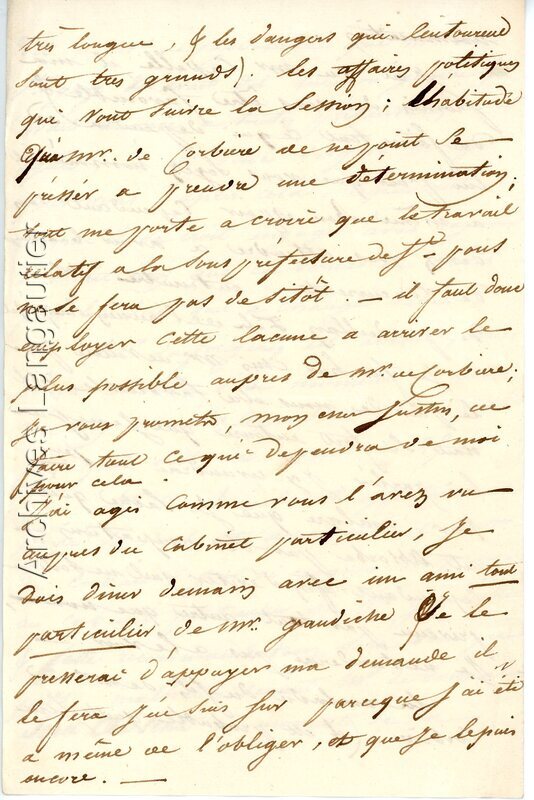 très longue, & les dangers qui l'entourend
sont tres grands). les affaires politiques
qui vont suivre la Session; l'habitude
qu'a mr. de Corbiere de ne point se
présser a prendre une détermination;
tout me porte a croire que le travail
relatif a la Sous préfecture de St pons
ne se fera pas de sitôt. — il faut donc
employer cette lacune a arriver le
plus possible aupres de mr. de Corbiere;
Je vous promets, mon cher Justin, de
faire tout ce qui dependra de moi
pour cela.
J'ai agis comme vous l'avez vu
aupres du Cabinet particulier, Je
dois diner demain avec un ami tout
particulier de mr. gaudiche Je le
presserai d'appuyer ma demande il
le fera J'en suis sur parceque J'ai été
a même de l'obliger, et que Je le puis
encore. —
Archives Langautier